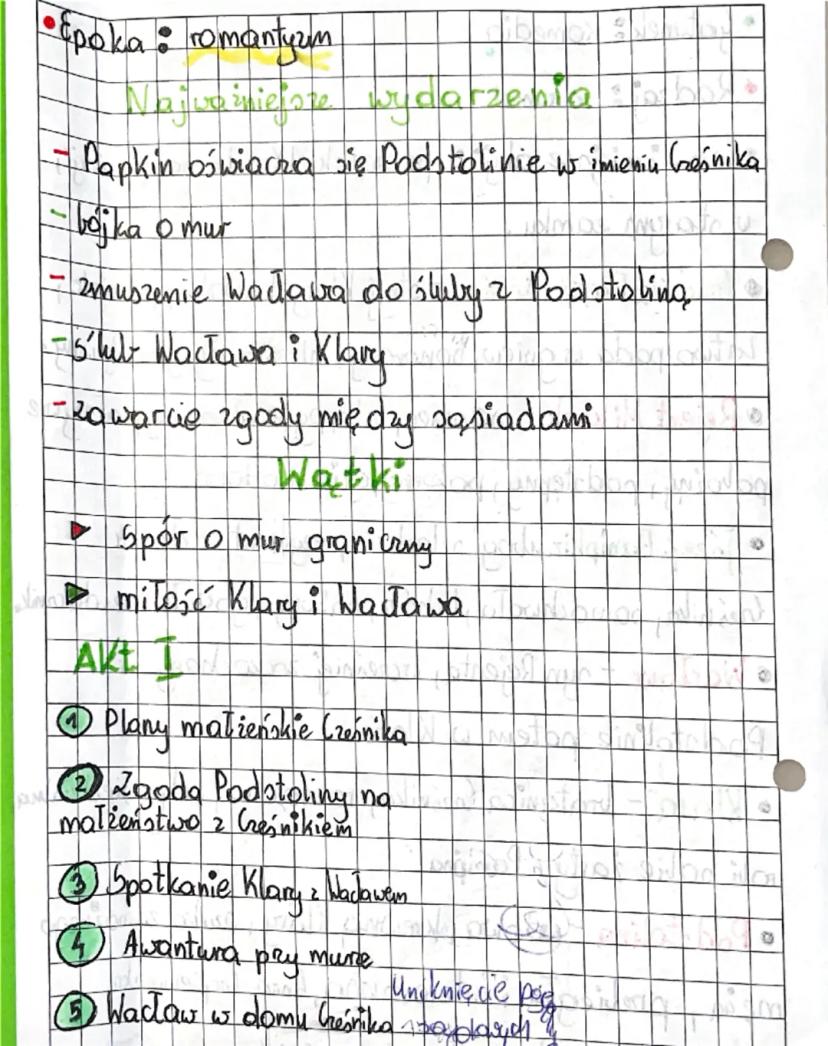 • Epoka: romantyzm
Najważniejsze wydarzenia
- Papkin oświacza się Podstolinie w imieniu Cześnika
- bójka o mur
- zmuszenie Wacława do śluby z Podstoliną
- ślub Wacława i Klary
- zawarcie zgody między sąsiadami
Wątki
▶ spór o mur graniczny
▶ miłość Klary i Wacława
Akt I
1 Plany małżeńskie Cześnika
2 Zgoda Podstoliny na
małżeństwo z Cześnikiem
3 Spotkanie Klary z Wacławem
4 Awantura przy murze
Uniknięcie
5 Wacław w domu Cześnika